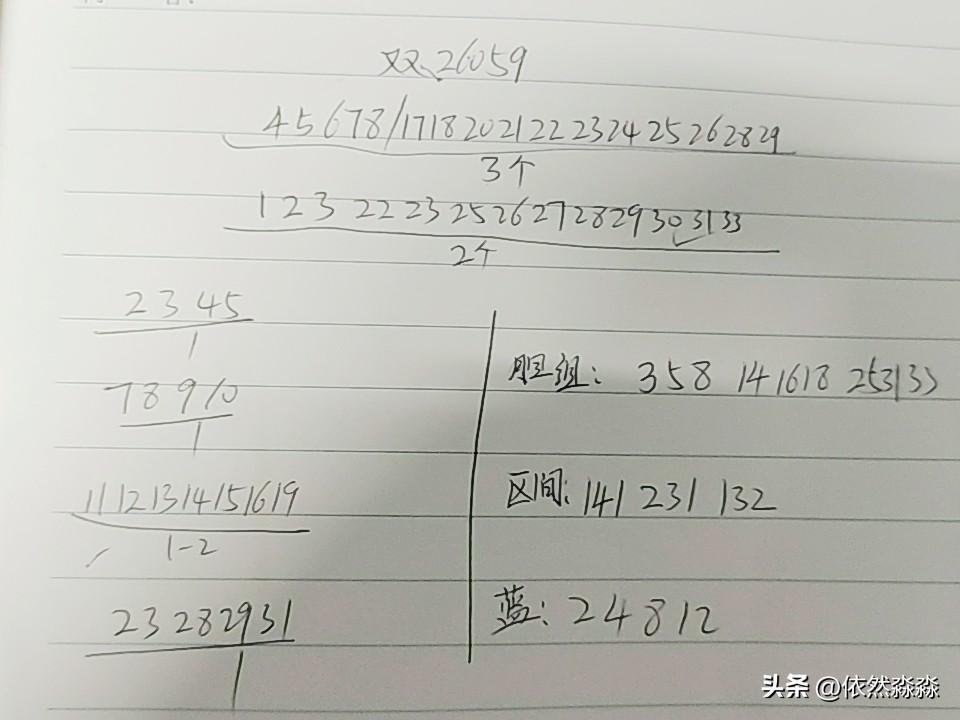 双、26059
45678/1718202122232425262829
3个
123 22232526272829303133
2个
2345
1
78910
1
11121314151619
1-2
23282931
1
胆组: 358 141618 253133
区间: 141 231 132
蓝: 24812
头条 @依然淼淼